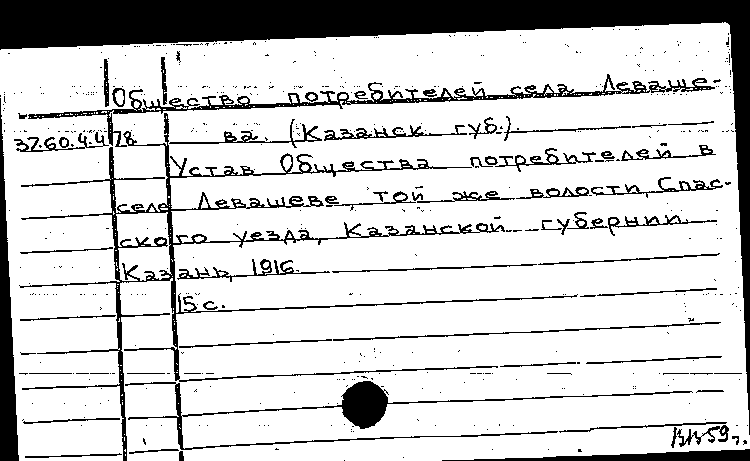 Общество потребителей села Леваше-
37.60.4.4.78 ва. (Казанск. губ.).
Устав Общества потребителей в
селе Левашеве, той же волости, Спас-
ского уезда, Казанской губернии.
Казань, 1916.
15 с.